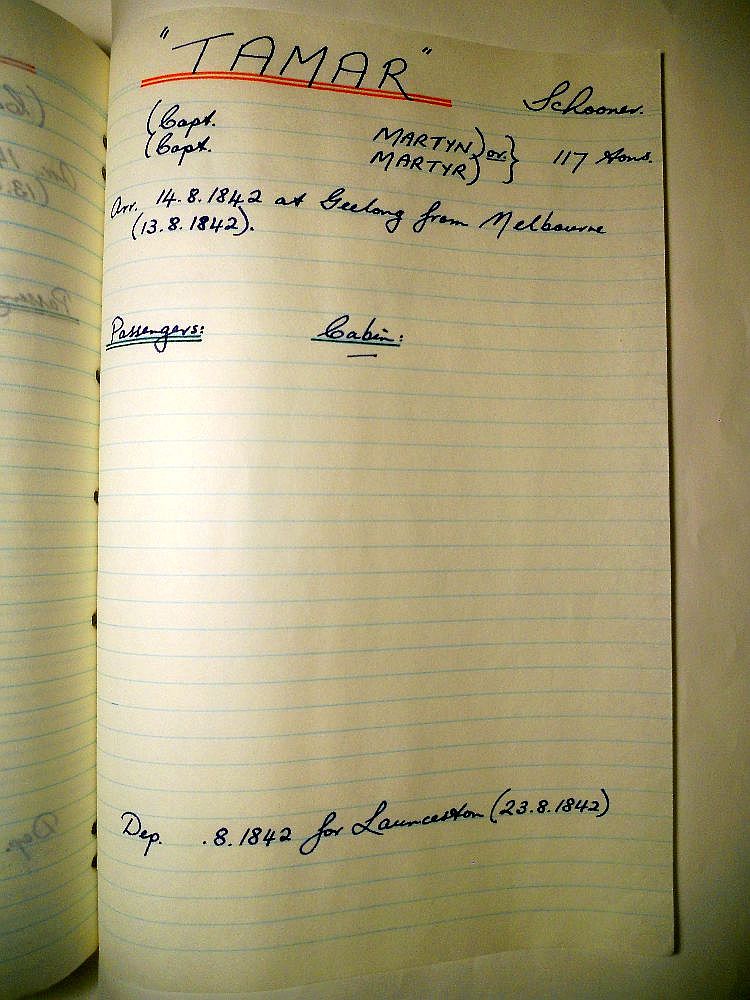 "TAMAR"
Schooner.
(Capt. MARTYN) or }
(Capt. MARTYR) } 117 tons.
Arr. 14.8.1842 at Geelong from Melbourne
(13.8.1842).
Passengers: Cabin:
Dep. .8.1842 for Launceston (23.8.1842)